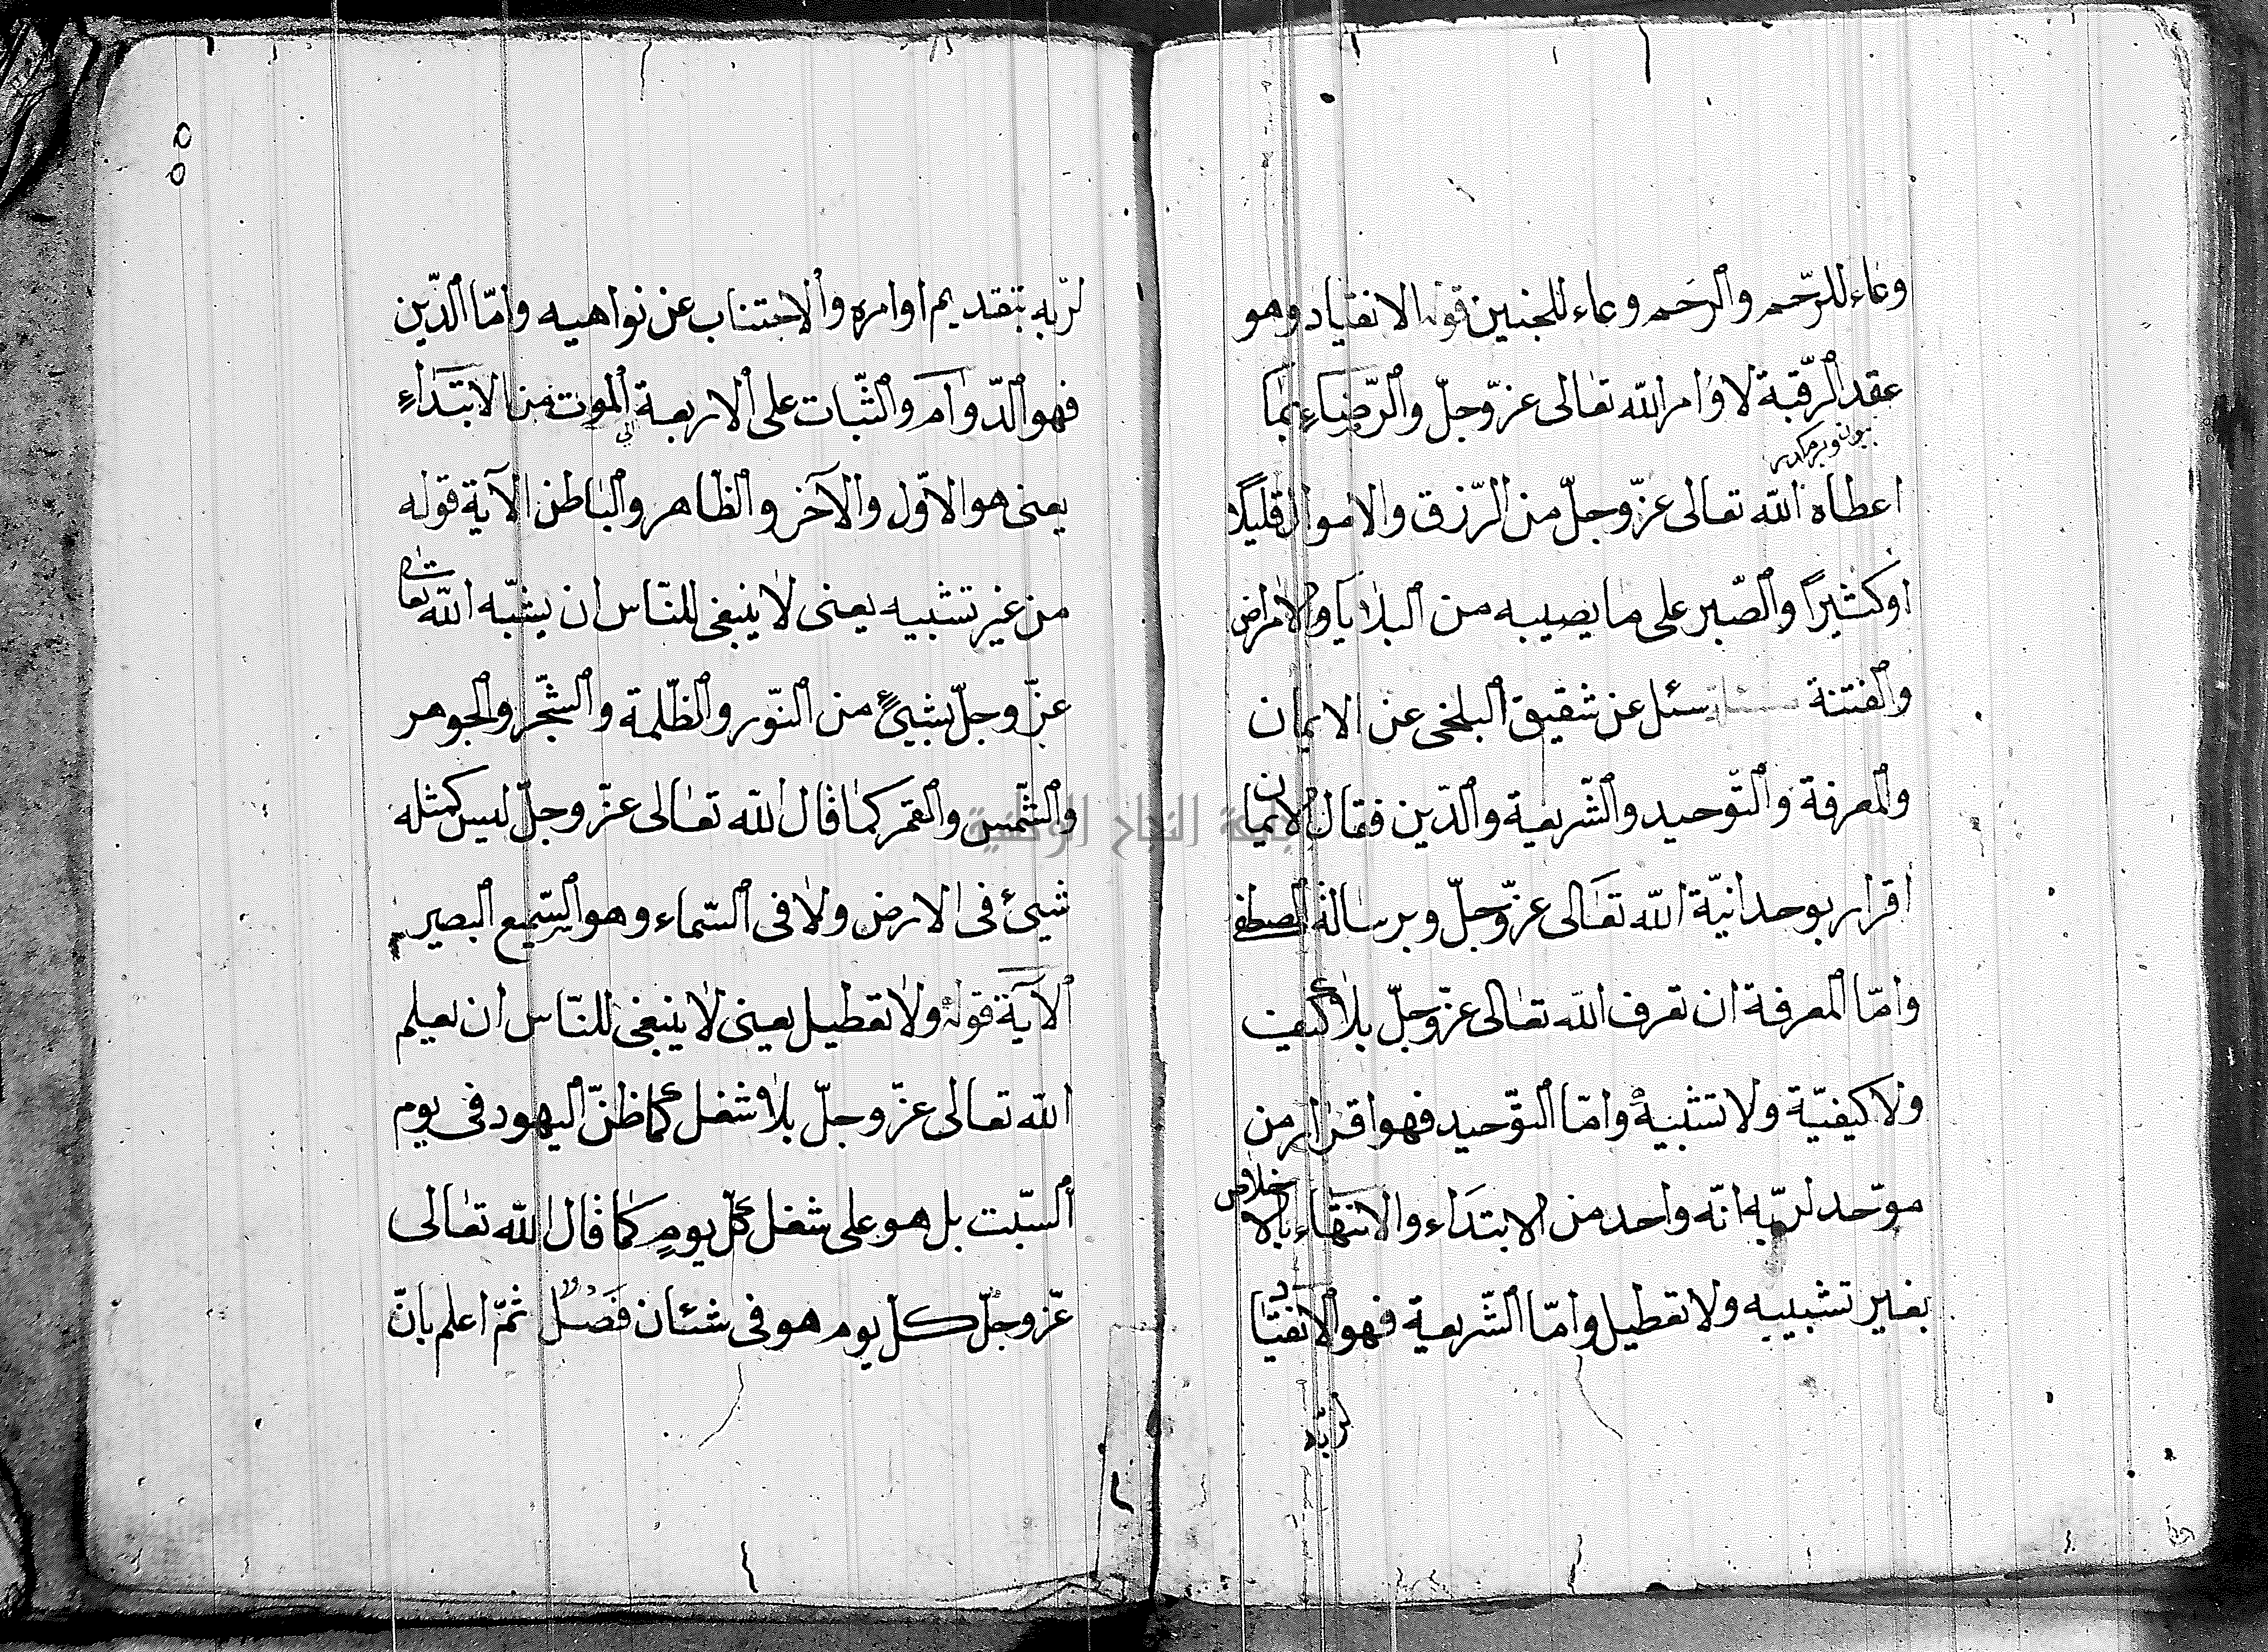 وعاء للرّحم والرحم وعاء للجنين قوله الانقياد وهو
عقد الرّقبة لاوامر الله تعالى عزّ وجلّ والرّضاء بما
اعطاه الله تعالى عزّ وجلّ من الرّزق والاموال قليلا
اوكثيرًا والصّبر على ما يصيبه من البلايا والامراض
والفتنة سئل عن شقيق البلخى عن الايمان
والمعرفة والتّوحيد والشّريعة والدّين فقال الايمان
اقرار بوحدانيّة الله تعَالى عزّ وجلّ وبرسالة المصطفى
وامّا المعرفة ان تعرف الله تعالى عزّ وجلّ بلا كيف
ولا كيفيّة ولا تشبيه وامّا التوّحيد فهو اقرار من
موّحد لربّه انّه واحد من الابتدَاء والانتهَاءِ بالاخلاص
بغير تشبيه ولا تعطيل وامّا الشّريعة فهو الانقياد
لربّه
٥٥
لربّه بتقديم اوامره والاجتناب عن نواهيه وامّا الدّين
فهو الدّوام والثّبات على الاربعة الى الموت من الابتدَاءِ
يعنى هو الاوّل والآخر والظاهر والباطن الآية قوله
من غير تشبيه يعنى لا ينبغى للنّاس ان يشبّه الله تعالى
عزّ وجلّ بشيئٍ من النّور والظّلمة والشّجر والجوهر
والشّمس والقمر كما قال الله تعالى عزّ وجلّ ليس كمثله
شيئ فى الارض ولا فى السّماء وهو السّميع البصير
الآية قوله ولا تعطيل يعنى لا ينبغى للنّاس ان يعلم
الله تعالى عزّ وجلّ بلا شغل كما ظنّ اليهود فى يوم
السّبت بل هو على شغل كلّ يومٍ كما قال الله تعالى
عزّ وجلّ كلّ يوم هو فى شئان فَصْلٌ ثمّ اعلم بانّ